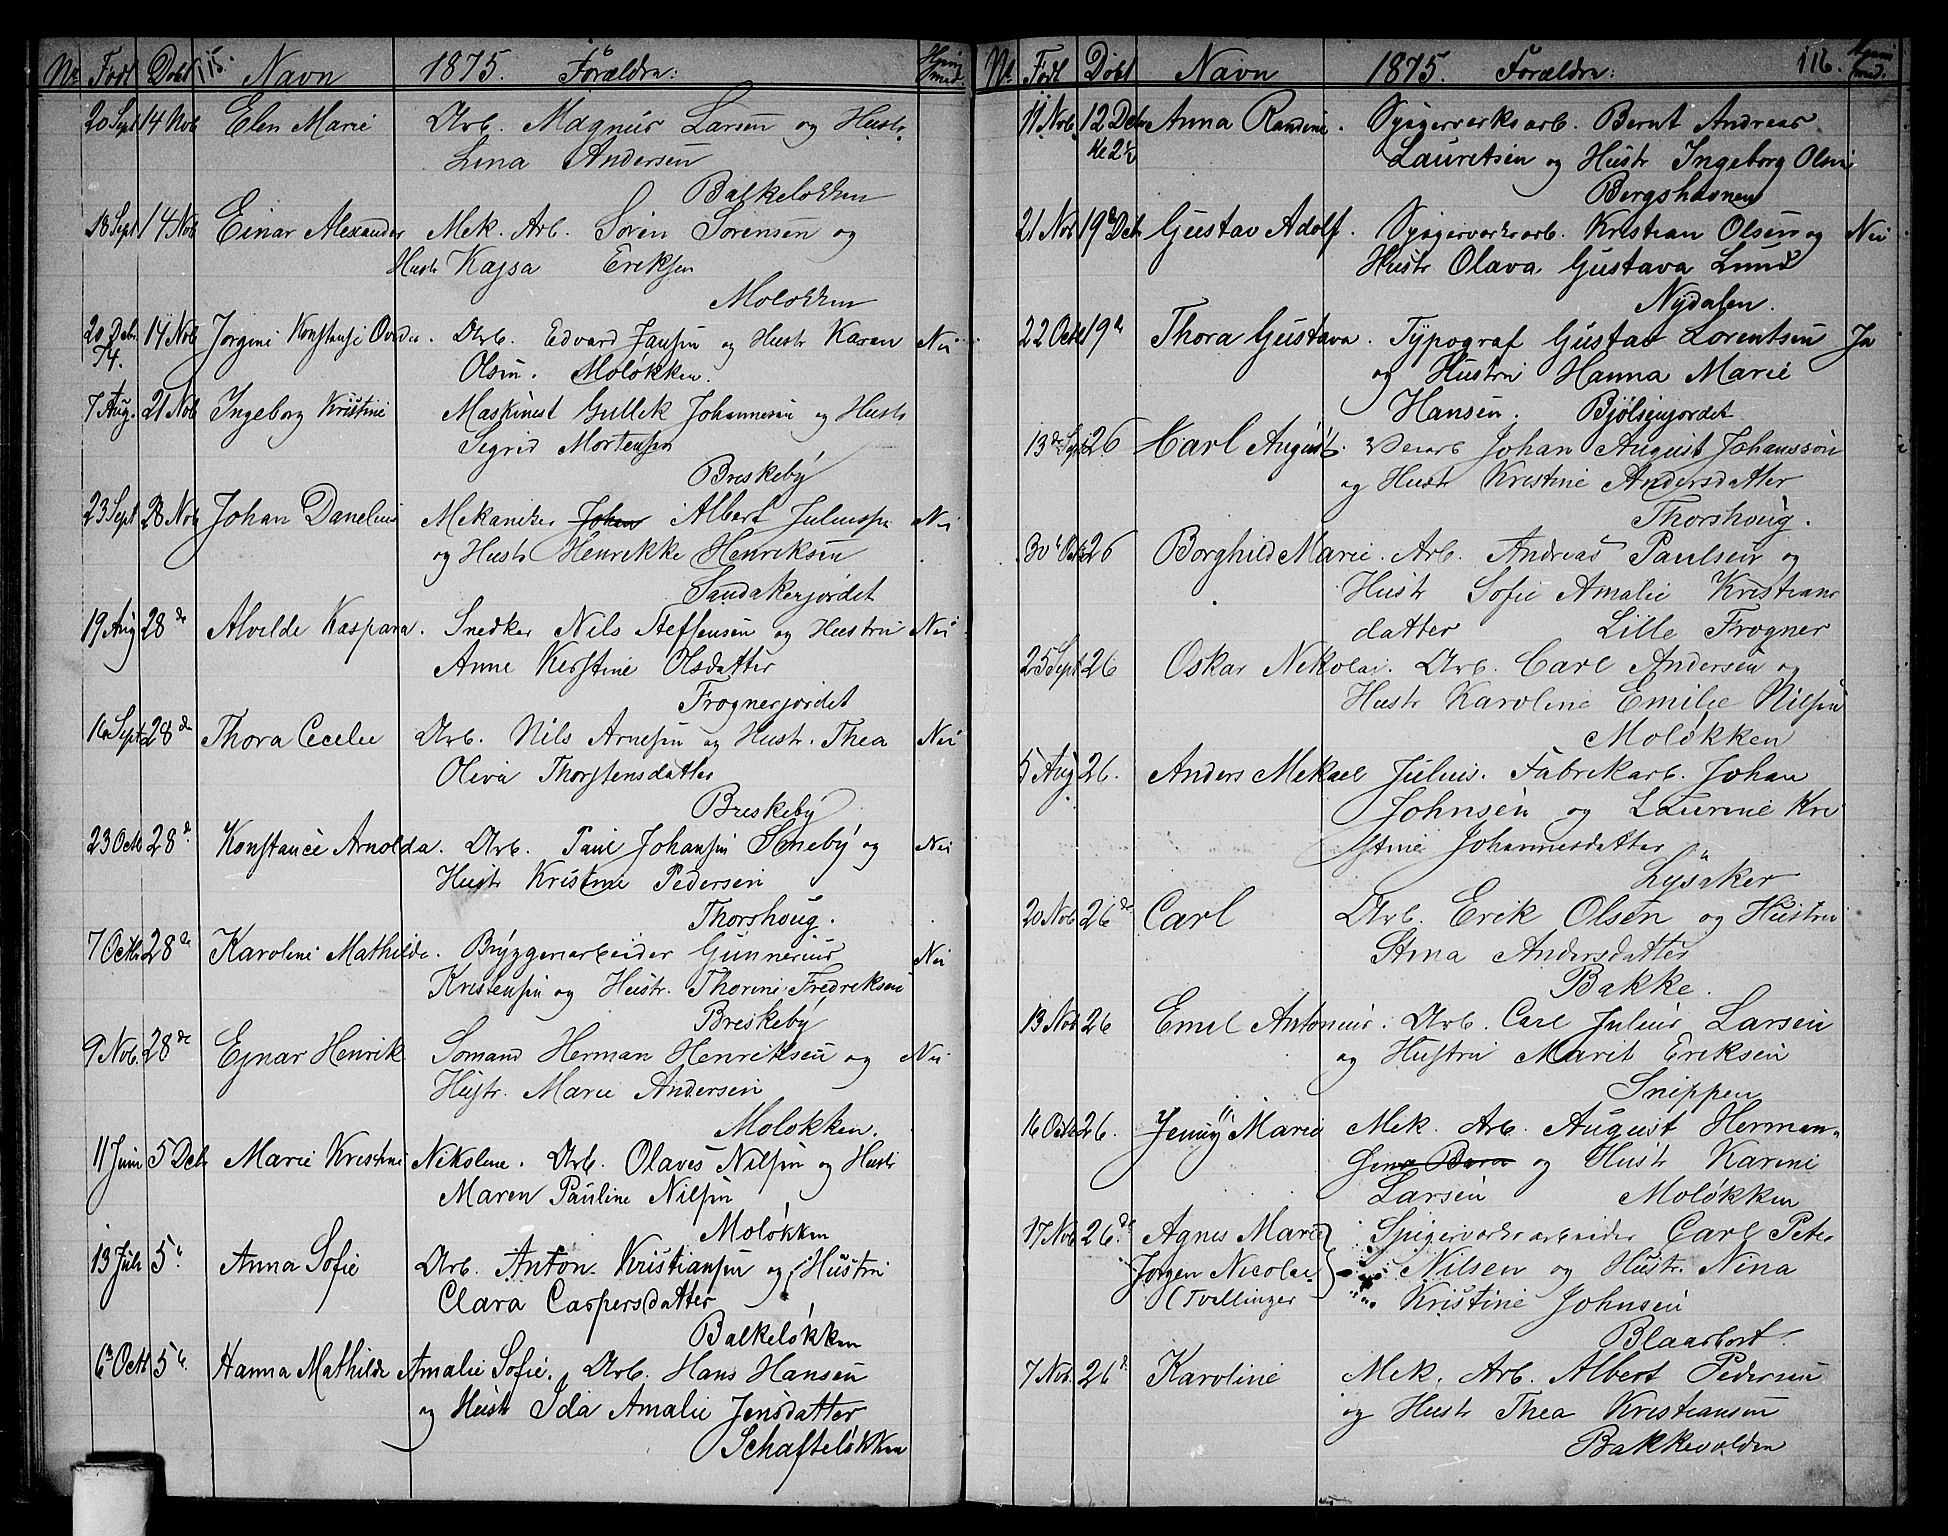 No Født Døbt 115. Navn 1875. Forældre: Hjem med.
20 Sept 14 Nob Elen Marie Arb. Magnus Larsen og Hustr.
Lina Andersen
Balkeløkken
18 Sept 14 Nob Einar Alexander Mek. Arb. Søren Sørensen og
Hustr Kajsa Eriksen
Moløkken
20 Debr 14 Nob Jørgine Konstanse Ovidia. Arb. Edvard Jansen og Hustr Karen Nei
74. Olsen. Moløkken.
7 Aug. 21 Nob Ingeborg Kristine Maskinest Gullik Johannesen og Hustr
Sigrid Mortensen
Breskeby
23 Sept 28 Nob Johan Danelius Mekaniker Johan Albert Juliussen Nei
og Hustr Henrikke Henriksen
Sandakerjordet
19 Aug 28 de Alvilde Kaspara. Snedker Nils Steffensen og Hustru Nei
Anne Kerstine Olsdatter
Frognerjordet
16 Sept 28 de Thora Cecelie Arb. Nils Arnesen og Hustr. Thea Nei
Olivia Thorstensdatter
Breskeby
23 Octb 28 d. Konstance Arnolda. Arb. Paul Johansen Seneby og Nei
Hustr Kristine Pedersen
Thorshoug.
7 Octb 28 de Karoline Mathilde. Bryggeriarbeider Gunnerius Nei
Kristensen og Hustr. Thorine Fredriksen
Breskeby
9 Nob. 28 de Ejnar Henrik Sømand Herman Henriksen og Nei
Hustr. Marie Andersen
Moløkken.
11 Juni 5 Deb Marie Kristine Nikoline. Arb. Olaves Nilsen og Hustr
Maren Pauline Nilsen
Moløkken
13 Juli 5 Anna Sofie Arb. Anton Kristiansen og Hustru
Clara Caspersdatter
Balkeløkken
6 Octb 5 Hanna Mathilde Amalie Sofie. Arb. Hans Hansen
og Hustr Ida Amalie Jensdatter
Schafteløkken
No Født Døbt Navn 1875. Forældre: 116. Hjem med.
11 Nob. 12 Debr Anna Randine. Spigerverksarb. Bernt Andreas
Kl 2 1/2 Lauretsen og Hustr Ingeborg Olsen
Bergshavnen
21 Nob 19 Deb Gustav Adolf. Spigerverksarb. Kristian Olsen og Nei
Hustr Olava Gustava Lund
Nydalen.
22 Octb 19 Thora Gustava. Typograf Gustav Lorentsen Ja
og Hustru Hanna Marie
Hansen. Bjølsenjordet
13 Sept 26 Carl August. Veiarb Johan August Johansson
og Hustr Kristine Andersdatter
Thorshoug.
30 Octb 26 Borghild Marie. Arb. Andreas Paulsen og
Hustr Sofie Amalie Kristians
datter Lille Frogner
25 Sept 26 Oskar Nikolai. Arb. Carl Andersen og
Hustr Karoline Emilie Nilsen
Moløkken
5 Aug 26. Anders Mikael Julius. Fabrikarb. Johan
Johnsen og Laurine Kri
stine Johannesdatter
Lysaker
20 Nob 26 de Carl Arb. Erik Olsen og Hustru
Stina Andersdatter
Bakke.
13 Nob 26 Emil Antonius. Arb. Carl Julius Larsen
og Hustru Marit Eriksen
Snippen
16 Octb 26. Jenny Marie Mek. Arb. August Herman-
og Hustr Karine
Larsen Moløkken
17 Nob 26 de Agnes Marie Spigerverksarbeider Carl Peter
Jørgen Nicolai Nilsen og Hustr. Nina
(Tvillinger Kristine Johnsen
Blaasbort.
7 Nob. 26 d. Karoline Mek. Arb. Albert Pedersen
og Hustr Thea Kristiansen
Bakkevolden